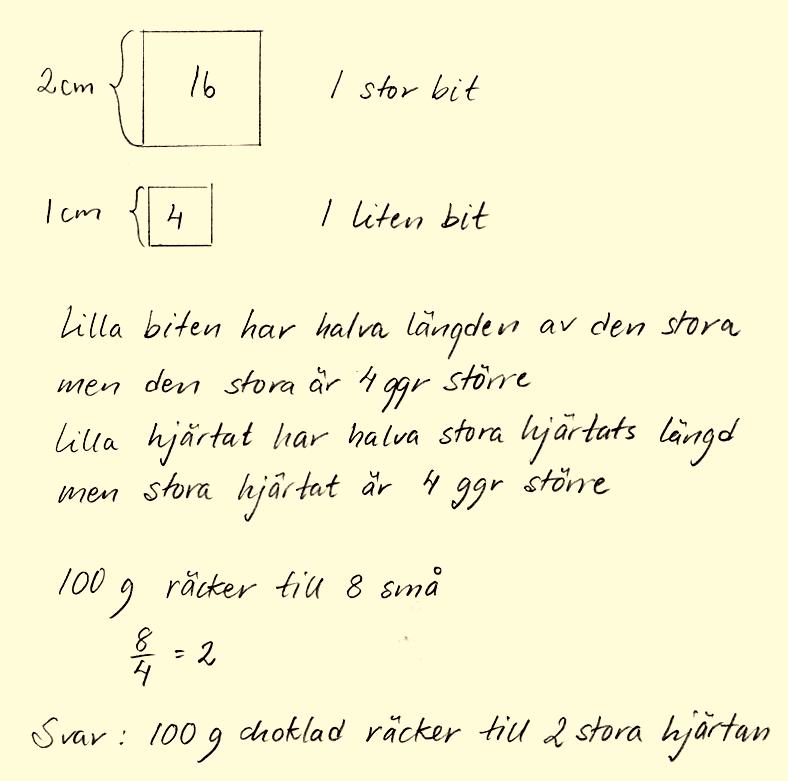 2 cm { 16 1 stor bit
1 cm { 4 1 liten bit
Lilla biten har halva längden av den stora
men den stora är 4 ggr större
Lilla hjärtat har halva stora hjärtats längd
men stora hjärtat är 4 ggr större
100 g räcker till 8 små
8/4 = 2
Svar: 100 g choklad räcker till 2 stora hjärtan